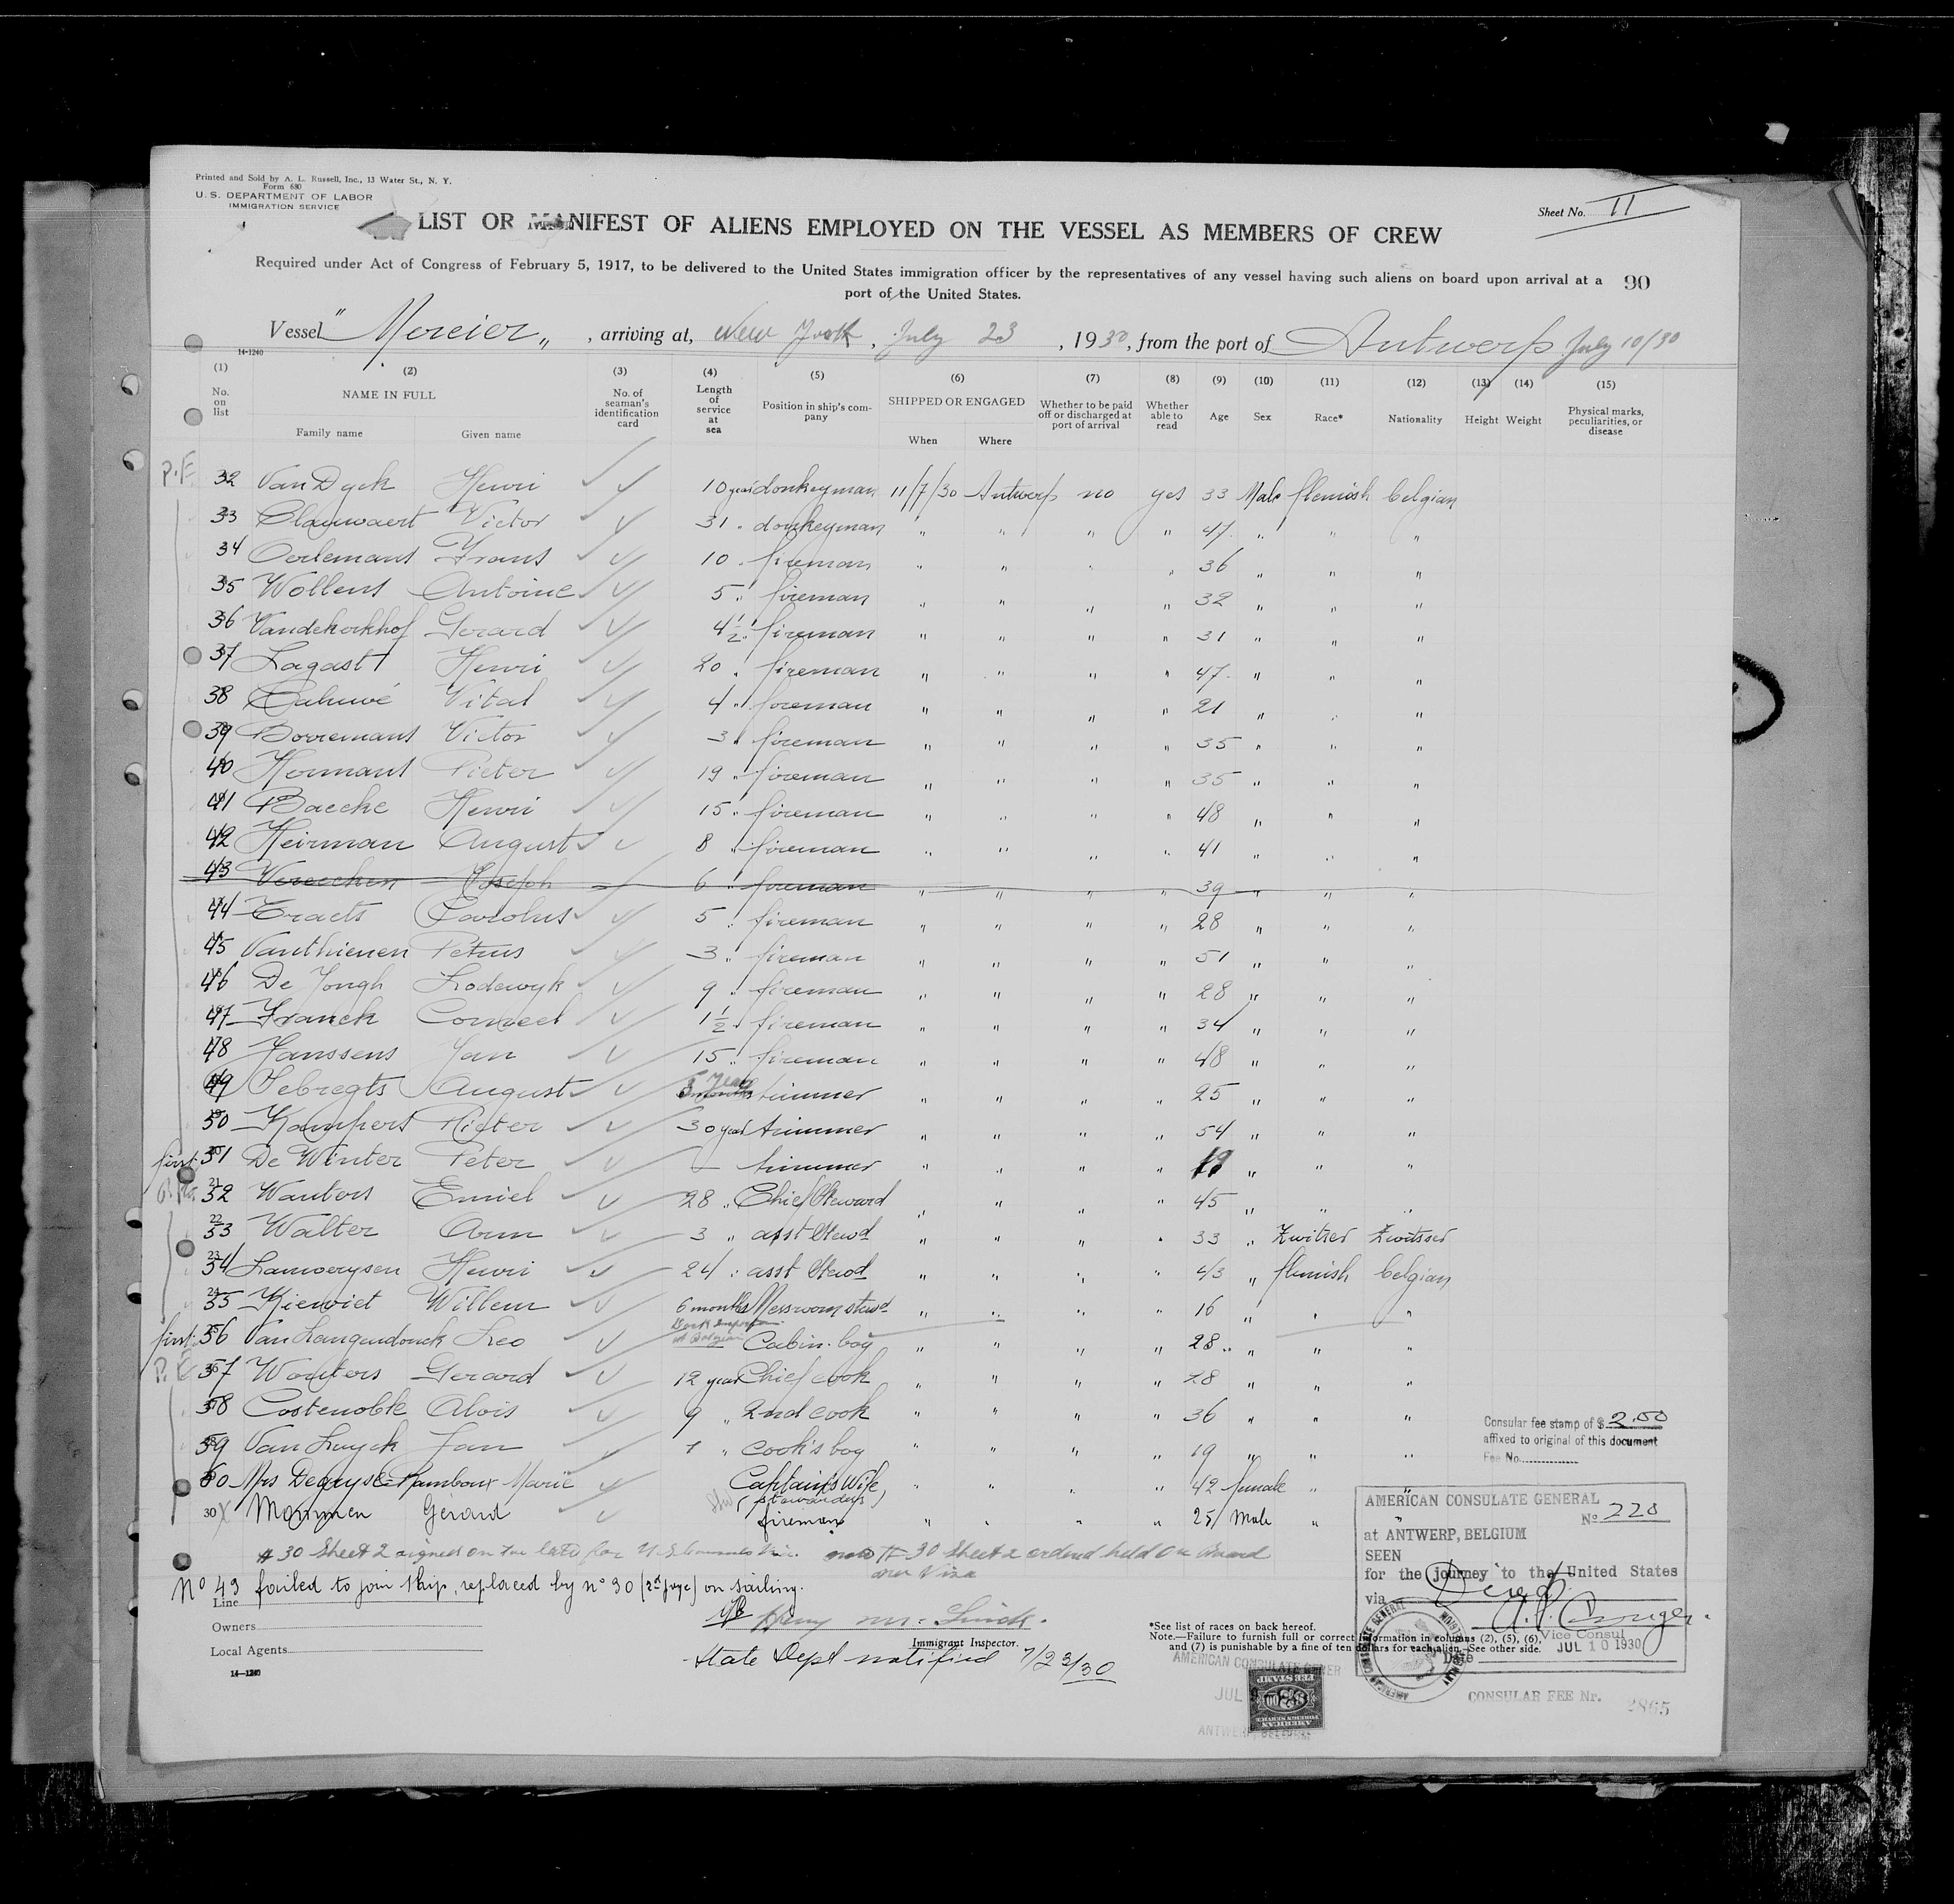 Printed and Sold by A. L. Russell, Inc., 13 Water St., N. Y.
Form 680
U. S. DEPARTMENT OF LABOR
IMMIGRATION SERVICE
Sheet No. II
LIST OR MANIFEST OF ALIENS EMPLOYED ON THE VESSEL AS MEMBERS OF CREW
Required under Act of Congress of February 5, 1917, to be delivered to the United States immigration officer by the representatives of any vessel having such aliens on board upon arrival at a
port of the United States.
90
Vessel "Mercier„, arriving at, New York, July 23, 1930, from the port of Antwerp July 10/30
14-1240
(1) (2) (3) (4) (5) (6) (7) (8) (9) (10) (11) (12) (13) (14) (15)
No. on list NAME IN FULL Family name Given name No. of seaman's identification card Length of service at sea Position in ship's company SHIPPED OR ENGAGED When Where Whether to be paid off or discharged at port of arrival Whether able to read Age Sex Race* Nationality Height Weight Physical marks, peculiarities, or disease
P.E 32 Van Dyck Henri 10 year donkeyman 11/7/30 Antwerp no yes 33 Male flemish belgian
33 Clauwaert Victor 31 " donkeyman " " " " 47 " " "
34 Oerlemans Frans 10 " fireman " " " " 36 " " "
35 Wollens Antoine 5 " fireman " " " " 32 " " "
36 Vandekerkhof Gerard 4 1/2 " fireman " " " " 31 " " "
37 Lagast Henri 20 " fireman " " " " 47 " " "
38 Cahuvé Vital 4 " fireman " " " " 21 " " "
39 Borremans Victor 3 " fireman " " " " 35 " " "
40 Hermans Pieter 19 " fireman " " " " 35 " " "
41 Baecke Henri 15 " fireman " " " " 48 " " "
42 Heirman August 8 " fireman " " " " 41 " " "
43 Vereecken Joseph 6 " fireman " " " " 39 " " "
44 Eraets Carolus 5 " fireman " " " " 28 " " "
45 Vanthienen Petrus 3 " fireman " " " " 51 " " "
46 De Jongh Lodewyk 9 " fireman " " " " 28 " " "
47 Franck Corneel 1 1/2 " fireman " " " " 34 " " "
48 Janssens Jan 15 " fireman " " " " 48 " " "
49 Sebregts August year trimmer " " " " 25 " " "
50 Kampert Pieter 30 year trimmer " " " " 54 " " "
first 51 De Winter Peter — trimmer " " " " 19 " " "
52 Wauters Emiel 28 " Chief Steward " " " " 45 " " "
53 Walter Arm 3 " asst Stewd " " " " 33 " Zwitser Zwitsser
54 Lauwerysen Henri 24 " asst Stewd " " " " 43 " flemish belgian
55 Kiewiet Willem 6 months Messroom stewd " " " " 16 " " "
first 56 Van Langendonck Leo Cabin-boy " " " " 28 " " "
P.E 57 Wouters Gerard 12 year Chief cook " " " " 28 " " "
58 Costenoble Alois 9 " 2nd cook " " " " 36 " " "
59 Van Luyck Jan 1 " cook's boy " " " " 19 " " "
60 Mrs Degryse-Rambour Marie Captain's Wife (stewardess) " " " " 42 female "
30 X Mommen Gerard fireman " " " " 25 Male " "
Consular fee stamp of $ 2.00
affixed to original of this document
Fee No.
# 30 Sheet 2 signed on too late for # 30 Sheet 2 ordered held on Board
no Visa
No 43 failed to join ship, replaced by n° 30 (2d page) on sailing.
Line
Owners
Local Agents
14-1240
Henry
Immigrant Inspector.
State Dept notified 7/23/30
*See list of races on back hereof.
Note.—Failure to furnish full or correct information in columns (2), (5), (6),
and (7) is punishable by a fine of ten dollars for each alien. See other side.
AMERICAN CONSULATE GENERAL
No 220
at ANTWERP, BELGIUM
SEEN
for the journey to the United States
via Direct
Vice Consul
Date JUL 10 1930
CONSULAR FEE Nr. 2865